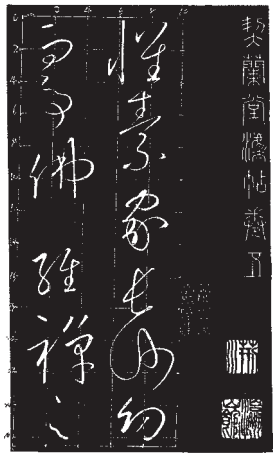 契蘭堂法帖卷五
懷素家長沙幼
而事佛 經禪之